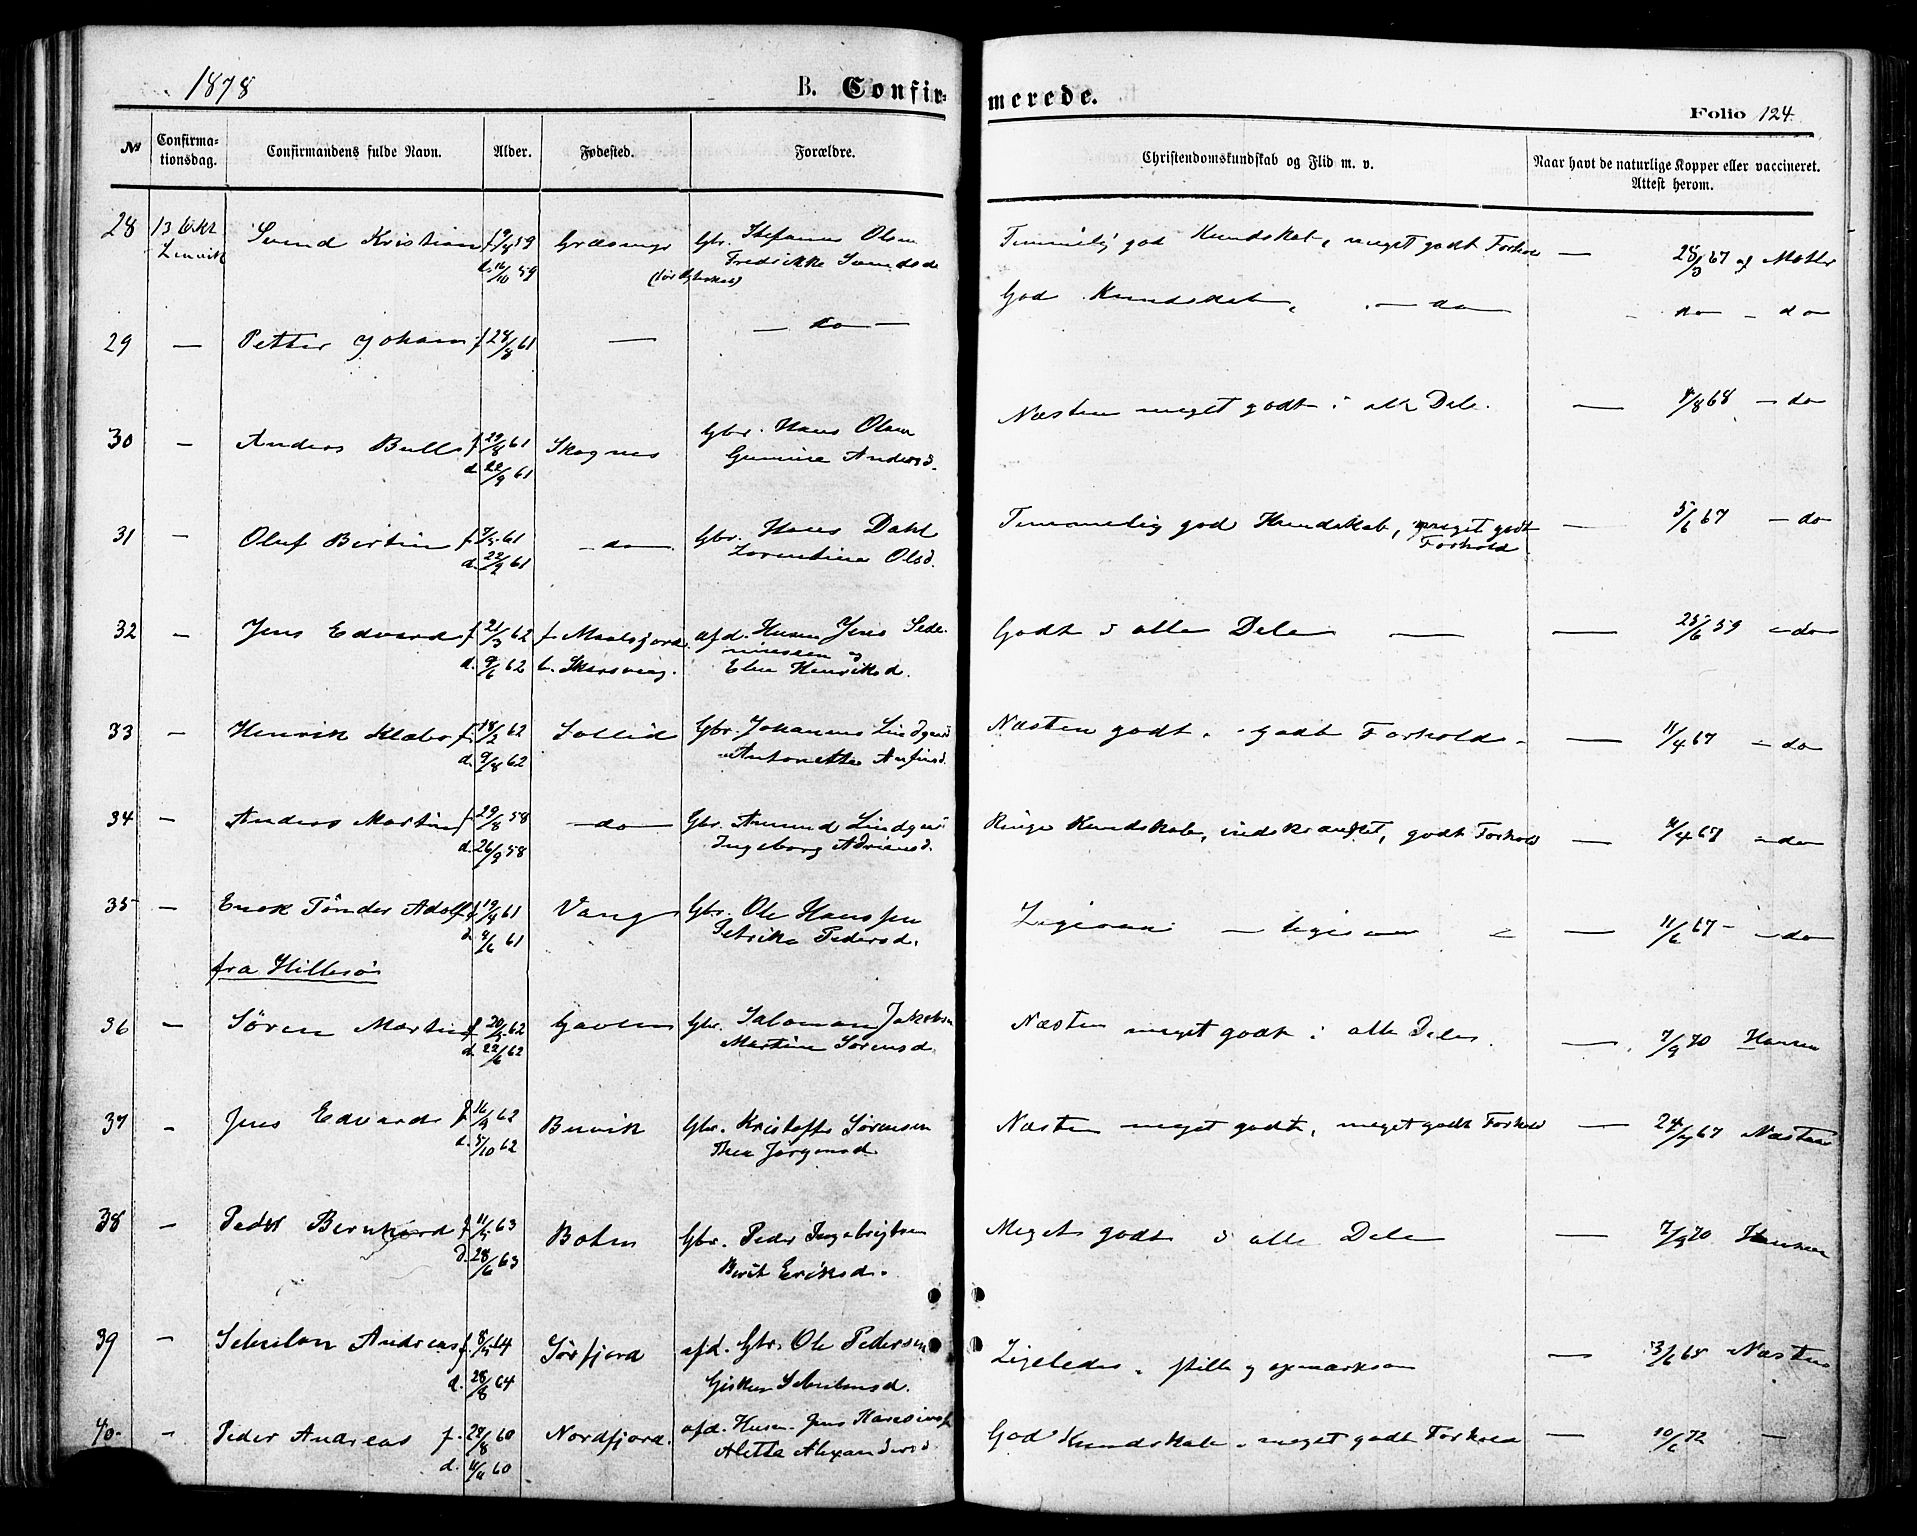 1878 B. Confirmerede. Folio 124.
№ Confirmationsdag. Confirmandens fulde Navn. Alder. Fødested. Forældre. Christendomskundskab og Flid m. v. Naar havt de naturlige Kopper eller vaccineret. Attest herom.
28 13 Okt Svend Kristian f 9/4 59 Græsmyr Gbr. Stefanus Olsen Temmelig god Kundskab, meget godt Forhold — 28/9 67 af
Lenvik d. 16/10 59 Fredrikke Svendsd
29 — Petter Johan f 28/8 61 — — do — God Kundskab, — do — do — do
30 — Anders Bull f 29/8 61 Skognes Gbr. Hans Olsen Næsten meget godt i alle Dele. — 4/8 68 — do
d. 22/9 61 Andersd.
31 — Oluf Bertin f 7/5 61 — do — Gbr. Hans Dahl Temmelig god Kundskab, meget godt — 5/6 67 — do
d. 22/9 61 Lorentine Olsd. Forhold
32 — Jens Edvard f 21/3 62 f. Maalsfjord afd. Husm Jens Sede- Godt i alle Dele — — 25/6 59 — do
d. 9/6 62 b. Skarsvaag. niussen og
Elen Henriksd.
33 — Henrik Klæbo f. 18/2 62 Sollid Gbr. Johannes Næsten godt, godt Forhold. — 11/4 67 — do
d. 9/8 62 Antonette Anfinsd.
34 — Anders Martin f 29/8 58 — do — Gbr. Amund Ringe Kundskab, indskrænket, godt Forhold — 4/4 67 — do
d. 26/9 58 Ingeborg Adriansd.
35 — Enok Tønder Adolf f 19/4 61 Vang Gbr. Ole Hanssen — 11/6 67 — do
d. 9/6 61 Petrikke Pedersd.
fra Hillesø
36 — Søren Martin f 20/5 62 Gaven Gbr. Salomon Jakobsen Næsten meget godt i alle Dele. — 7/9 70 Hansen
d. 22/6 62 Martine Sørensd.
37 — Jens Edvard f. 16/9 62 Buvik Gbr. Kristoffer Sørensen Næsten meget godt, meget godt Forhold — 24/7 67
d. 5/10 62 Thea Jørgensd.
38 — Peder Bernhard f 11/5 63 Botn Gbr. Peder Ingebrigtsen Meget godt i alle Dele — 7/9 70 Hansen
d. 28/6 63 Berit Eriksd.
39 — Andreas f. 8/5 64 Sørfjord afd. Gbr. Ole Pedersen Ligeledes, stille og opmærksom — 3/6 65
d. 28/8 64
40 — Peder Andreas f. 28/8 60 Nordfjord. afd. Husm. Jens God Kundskab, meget godt Forhold — 10/6 72 —
d. 11/11 60 Aletta Alexandersd